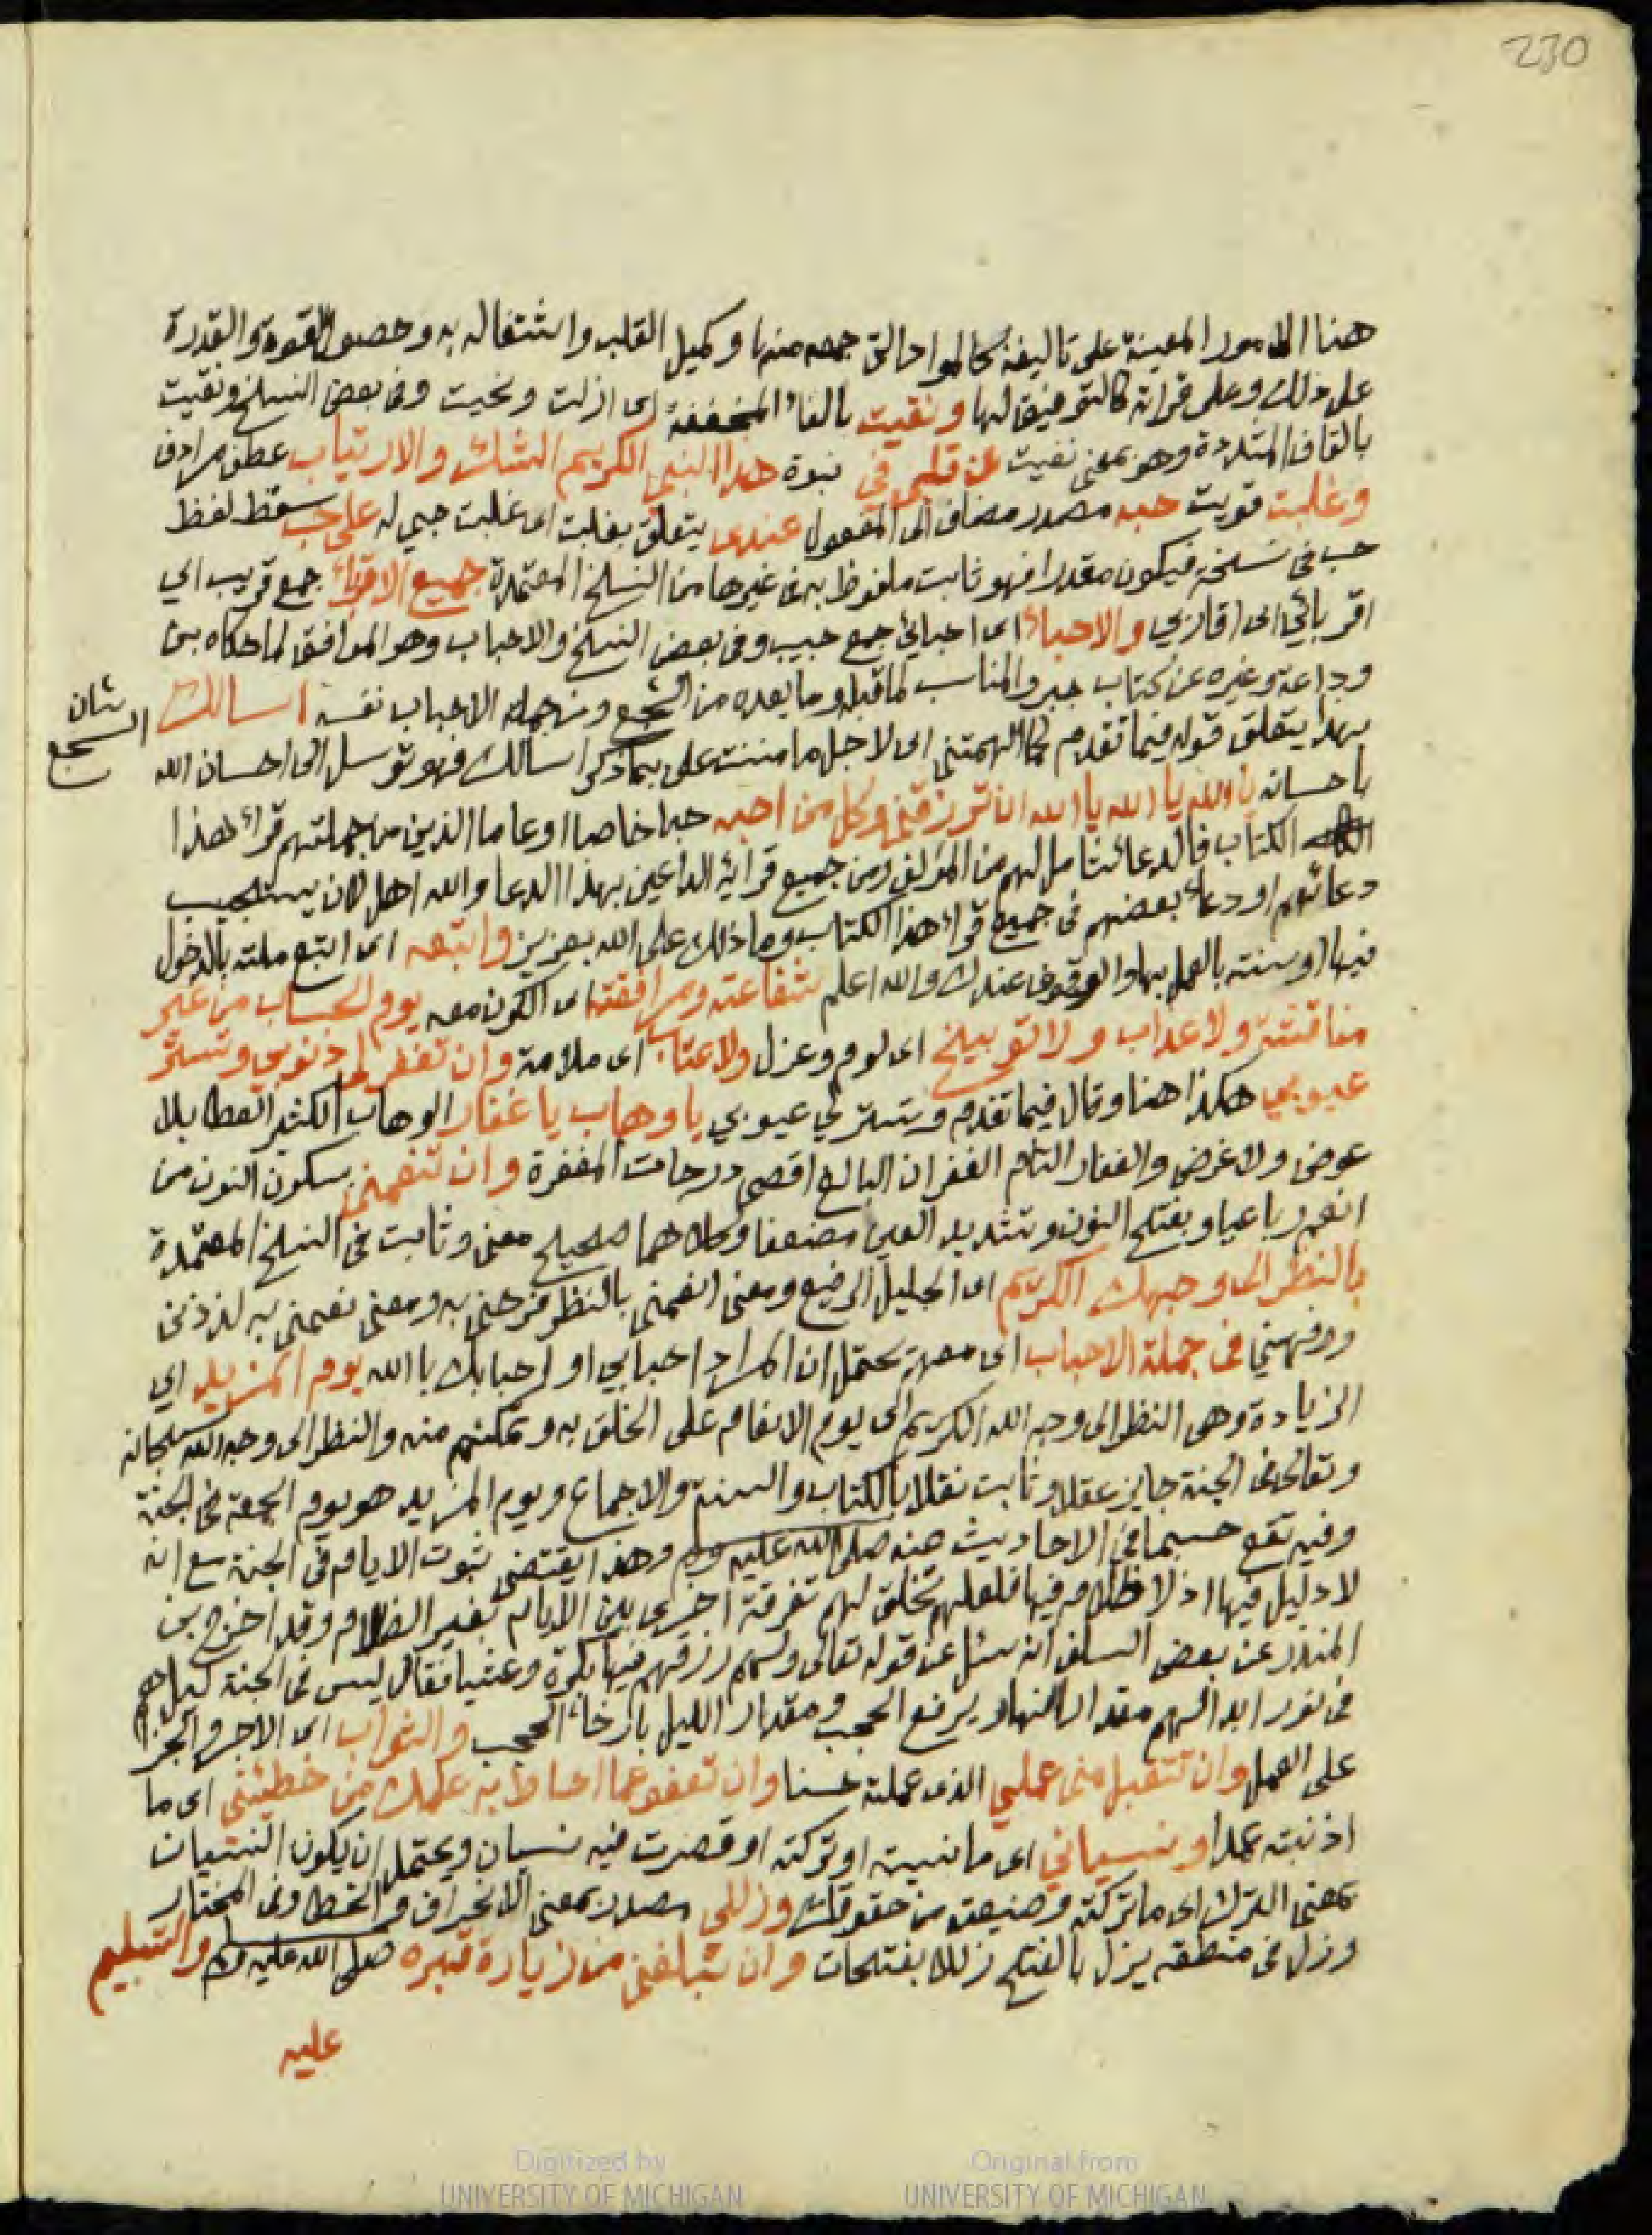 230
هنا الامور المعينة على تاليفه كالمواد التي جمعه منها وكميل القلب واشتغاله به وحصول القوة والقدرة
على ذلك وعلى قراءته كالتوفيق لها ونفيت بالفاء المخففة اى ازلت ونحيت وفى بعض النسخ ونقيت
بالقاف المشددة وهو بمعنى نفيت عن قلبي في نبوة هذا النبي الكريم الشك والارتياب عطف مرادف
وغلبت قويت حبه مصدر مضاف الى المفعول عندى يتعلق بغلبت اى غلبت حبي له على حب سقط لفظ
حب فى نسخة فيكون مقدرا فهو ثابت ملفوظ به فى غيرها من النسخ المعتمدة جميع الاقرباء جمع قريب اي
اقربائي اى اقاربي والاحباء اى احبائي جمع حبيب وفى بعض النسخ والاحباب وهو الموافق لما حكاه بن
وداعة وغيره عن كتاب جبر والمناسب لما قبله وما بعده من السجع ومن جملة الاحباب نفسه اسالك
شان السجع
بهذا يتعلق قوله فيما تقدم كما الهمتني اى لاجل ما مننت على بما ذكر اسالك فهو توسل الى احسان الله
باحسانه يا الله يا الله يا الله ان ترزقني وكل من احبه حبا خاصا او عاما الذين من جملتهم قراء هذا
الكتاب فالدعاء شامل لهم من المؤلف ومن جميع قراءه الداعين بهذا الدعا والله اهل لان يستجيب
دعاءهم او دعاء بعضهم فى جميع قراء هذا الكتاب وما ذلك على الله بعزيز واتبعه اى اتبع ملته بالدخول
فيها او سنته بالعمل بها والوقوف عندك والله اعلم شفاعته ومرافقته اى الكون معه يوم الحساب من غير
مناقشة ولا عذاب ولا توبيخ اى لوم وعزل ولا عتاب اى ملامة وان تغفر لي ذنوبي وتستر
عيوبي هكذا هنا وقال فيما تقدم وتستر لي عيوبي يا وهاب يا غفار الوهاب الكثير العطا بلا
عوض ولا غرض والغفار التام الغفران البالغ اقصى درجات المغفرة وان تنعمني بسكون النون من
انعم رباعيا وبفتح النون وتشديد العين مضعفا وكلاهما صحيح معنى وثابت فى النسخ المعتمدة
بالنظر الى وجهك الكريم اى الجليل الرفيع ومعنى انعمني بالنظر فرحني به ومعنى نعمني به لذذنى
ورفهني فى جملة الاحباب اى معهم يحتمل ان المراد احبابي او احبابك يا الله يوم المزيد اي
الزيادة وهى النظر الى وجه الله الكريم اى يوم الانعام على الخلق به وتمكنهم منه والنظر الى وجه الله سبحانه
وتعالى فى الجنة جايز عقلا وثابت نقلا بالكتاب والسنة والاجماع ويوم المزيد هو يوم الجمعة فى الجنة
وفيه تقع حسبما فى الاحاديث عنه صلى الله عليه وسلم وهذا يقتضى ثبوت الايام فى الجنة مع انه
لا دليل فيها اذ لا ظلام فيها فلعلهم تخلق لهم تفرقة اخرى بين الايام بغير الظلام وقد اخرج بن
المنذر عن بعض السلف انه سئل عن قوله تعالى ولهم رزقهم فيها بكرة وعشيا فقال ليس فى الجنة ليل هم
فى نور ابدا لهم مقدار النهار يرفع الحجب ومقدار الليل بارخاء الحجب والثواب اى الاجر والجزا
على العمل وان تتقبل منى عملي الذى عملته حسنا وان تعفو عما احاط به علمك من خطيئتي اى ما
اذنبته عمدا ونسياني اى ما نسيته او تركته او قصرت فيه نسيان ويحتمل ان يكون النسيان
بمعنى الترك اى ما تركته وضيعته من حقوقك وزللى مصدر بمعنى الانحراف والخطا وفى المختار
وزل فى منطقه يزل بالفتح زللا بفتحات وان تبلغني من زيارة قبره صلى الله عليه وسلم والتسليم
عليه
Digitized by UNIVERSITY OF MICHIGAN
Original from UNIVERSITY OF MICHIGAN